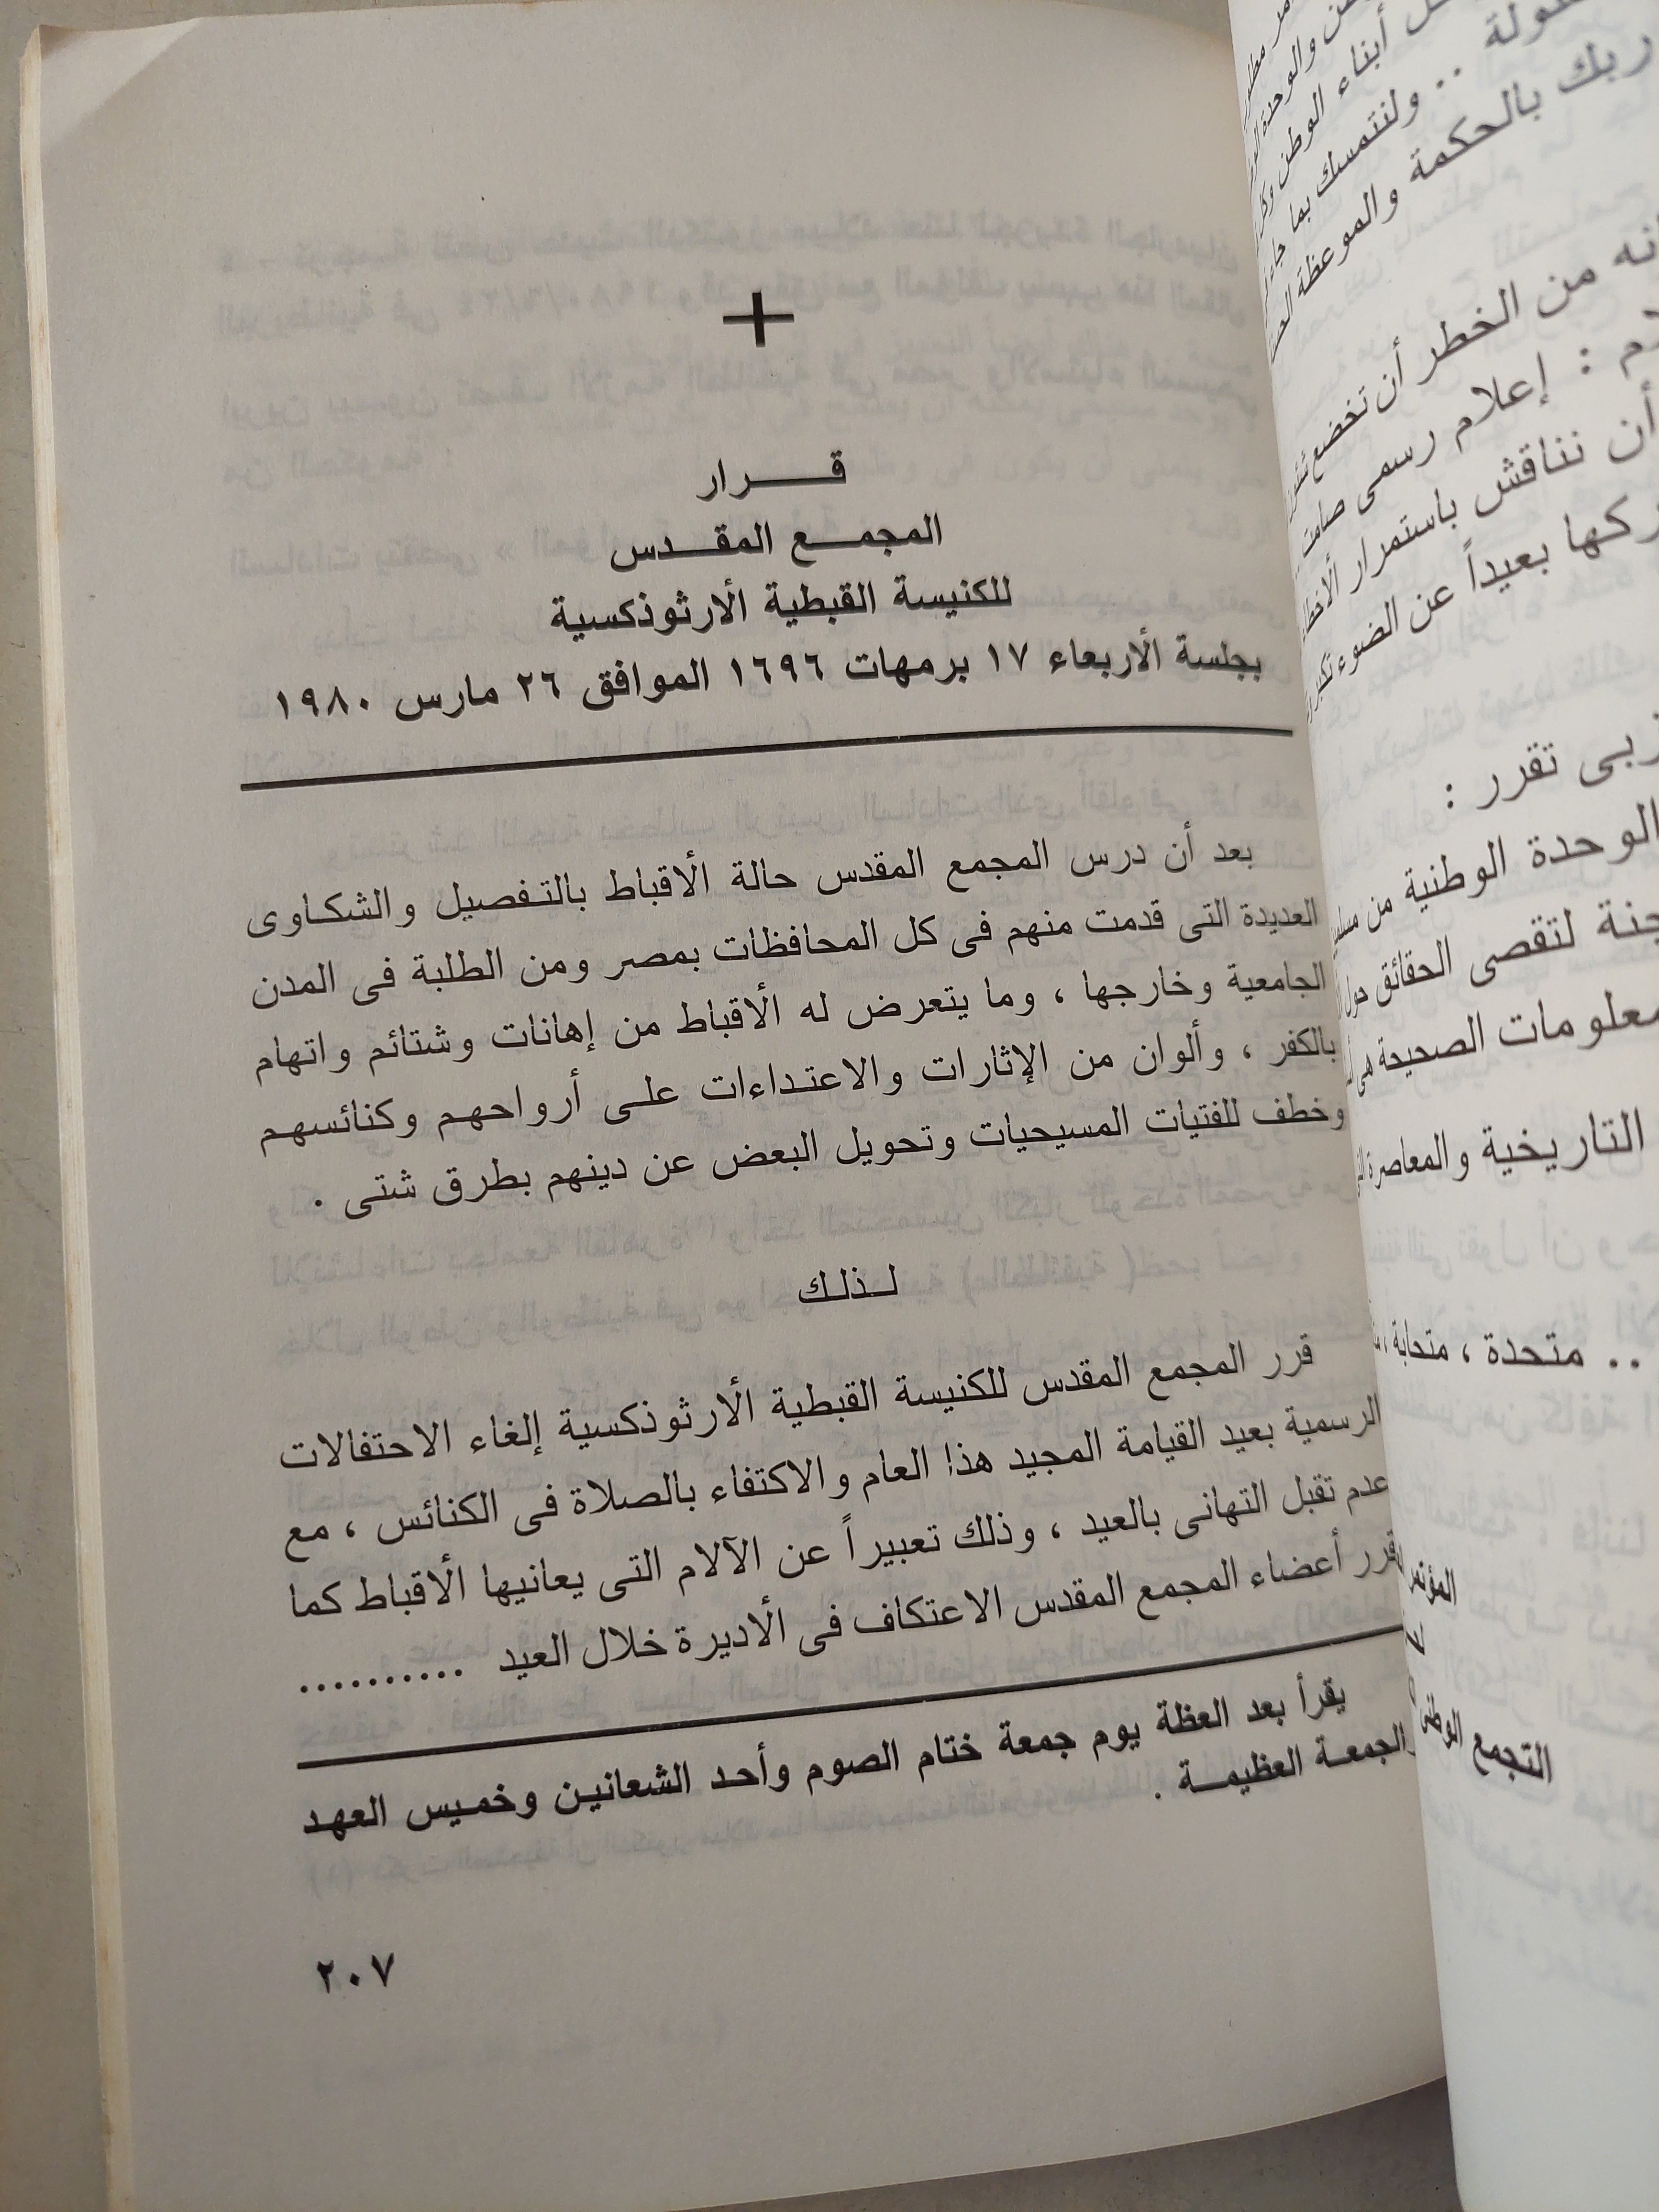 قــــرار
المجمــــع المقــــدس
للكنيسة القبطية الأرثوذكسية
بجلسة الأربعاء ١٧ برمهات ١٦٩٦ الموافق ٢٦ مارس ١٩٨٠
بعد أن درس المجمع المقدس حالة الأقباط بالتفصيل والشكاوى
العديدة التى قدمت منهم فى كل المحافظات بمصر ومن الطلبة فى المدن
الجامعية وخارجها ، وما يتعرض له الأقباط من إهانات وشتائم واتهام
بالكفر ، وألوان من الإثارات والاعتداءات على أرواحهم وكنائسهم
وخطف للفتيات المسيحيات وتحويل البعض عن دينهم بطرق شتى .
لــذلك
قرر المجمع المقدس للكنيسة القبطية الأرثوذكسية إلغاء الاحتفالات
الرسمية بعيد القيامة المجيد هذا العام والاكتفاء بالصلاة فى الكنائس ، مع
عدم تقبل التهانى بالعيد ، وذلك تعبيراً عن الآلام التى يعانيها الأقباط كما
قرر أعضاء المجمع المقدس الاعتكاف فى الأديرة خلال العيد ...........
يقرأ بعد العظة يوم جمعة ختام الصوم وأحد الشعانين وخميس العهد
والجمعـة العظيمــة .
٢٠٧
أبناء الوطن
.. ولنتمسك بما
ربك بالحكمة والموعظة
من الخطر أن تخضع
: إعلام رسمى صامت
أن نناقش باستمرار
بعيداً عن الضوء
تقرر :
الوحدة الوطنية من
لتقصى الحقائق حول
الصحيحة هى
التاريخية والمعاصرة
.. متحدة ، متحابة ،
المؤتمر
التجمع الوطنى